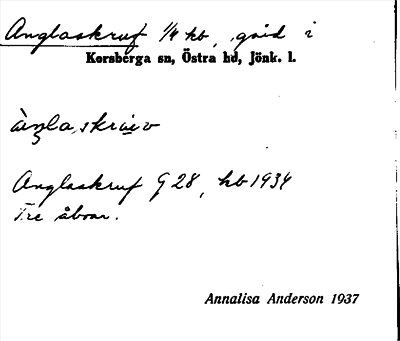 Änglaskruf 1/4 hb, gård i
Korsberga sn, Östra hd, Jönk. l.
àŋla, skrùv
Änglaskruf G 28, hb 1934
Tre åboar.
Annalisa Anderson 1937